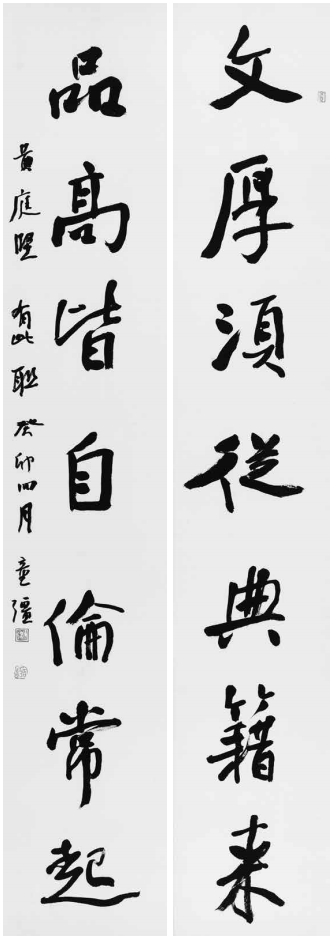 文厚須從典籍来
品高皆自倫常起
黄庭堅有此聯癸卯四月童彊